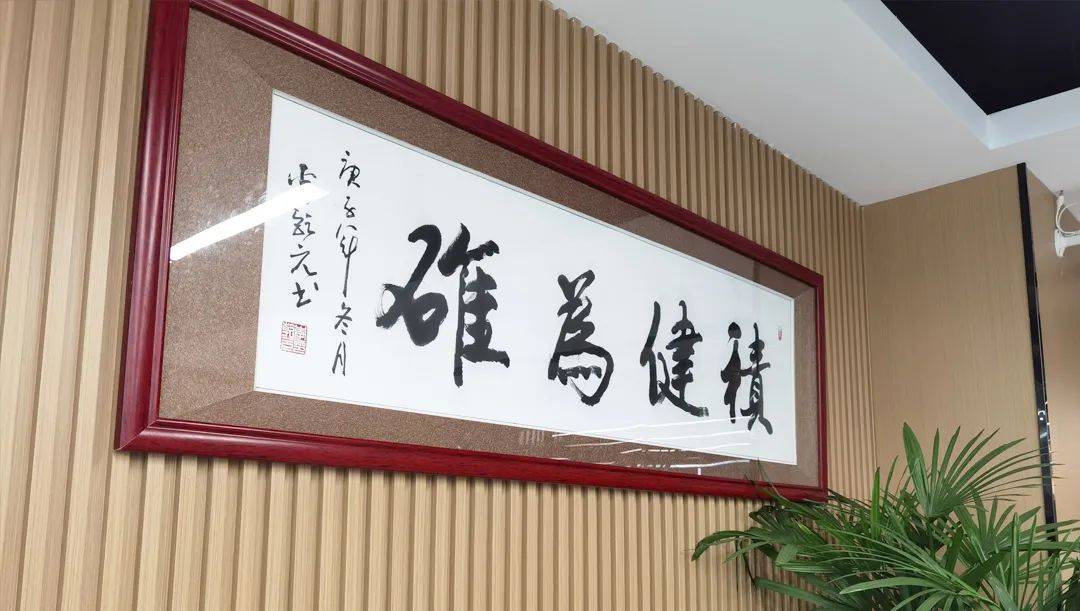 積健為雄
庚子年冬月
元书